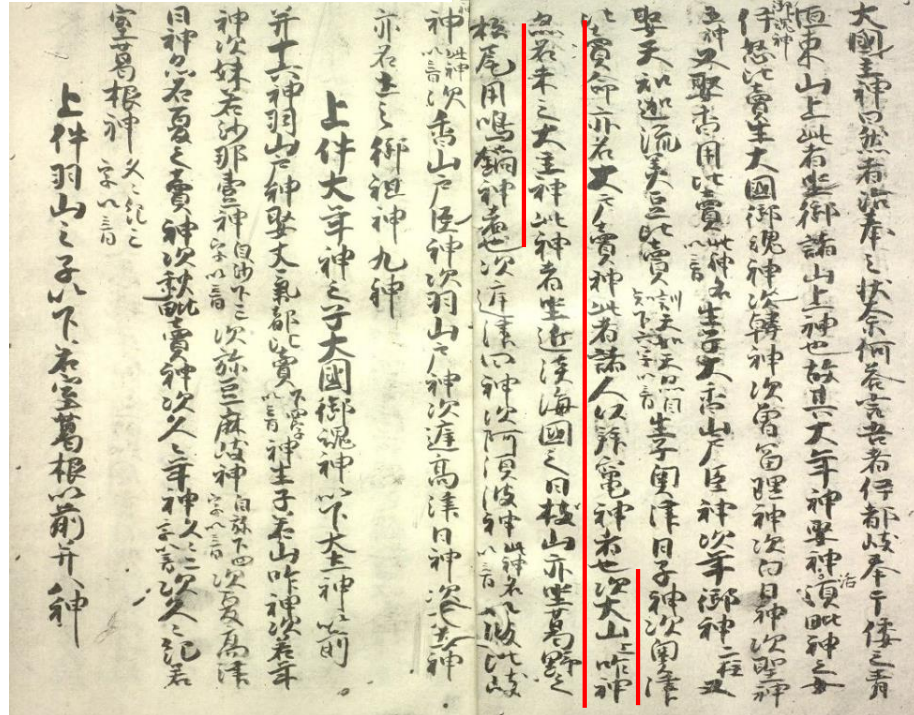 大國主神曰然者治奉之状奈何荅言吾者伊都岐奉于倭之青
垣東山上此者坐御諸山上神也故其大年神娶神活須毗神之女
伊怒比賣生大國御魂神次韓神次曽富理神次向日神次聖神
五神又娶香用比賣此神名以音生子大香山戸臣神次年御神二柱又
娶天知迦流美豆比賣訓天如天亦自知下六字以音生子奥津日子神次奥津
比賣命亦名大戸比賣神此者諸人以拜竈神者也次大山上咋神
亦名末之大主神此神者坐近淡海國之日枝山亦坐葛野之
松尾用鳴鏑神者也次庭津日神次阿須波神此神名以音次波比岐
神此神名以音次香山戸臣神次羽山戸神次庭高津日神次大土神
亦名土之御祖神九神
上件大年神之子大國御魂神以下大土神以前
并十六神羽山戸神娶大氣都比賣下四字以音神生子若山咋神次若年
神次妹若沙那賣神自沙下三字以音次弥豆麻岐神自弥下四字以音次夏高津
日神亦名夏之賣神次秋毗賣神次久々年神久々二字以音次久々紀若
室葛根神久々紀三字以音
上件羽山之子以下若室葛根以前并八神